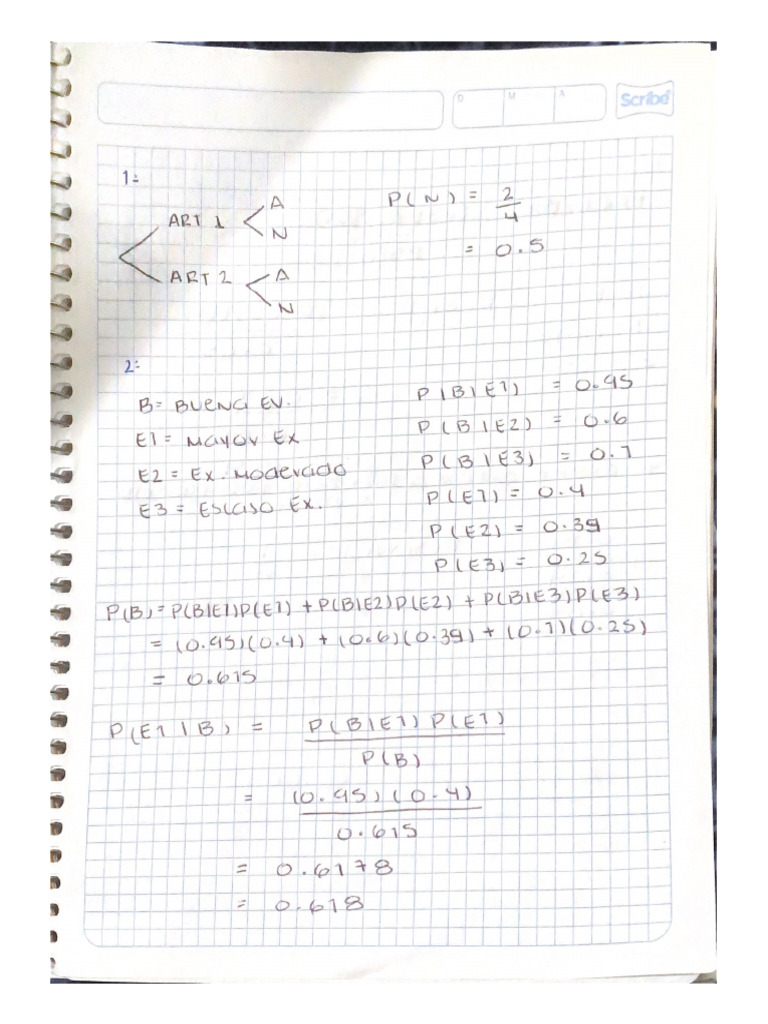 D M A Scribe
1:
ART 1 < A
N
ART 2 < A
N
P(N) = 2/4
= 0.5
2:
B = BUENA EV.
E1 = MAYOR EX
E2 = EX. MODERADO
E3 = ESCASO EX.
P(B|E1) = 0.95
P(B|E2) = 0.6
P(B|E3) = 0.1
P(E1) = 0.4
P(E2) = 0.39
P(E3) = 0.25
P(B) = P(B|E1)P(E1) + P(B|E2)P(E2) + P(B|E3)P(E3)
= (0.95)(0.4) + (0.6)(0.39) + (0.1)(0.25)
= 0.615
P(E1|B) = P(B|E1)P(E1)
P(B)
= (0.95)(0.4)
0.615
= 0.6178
= 0.618